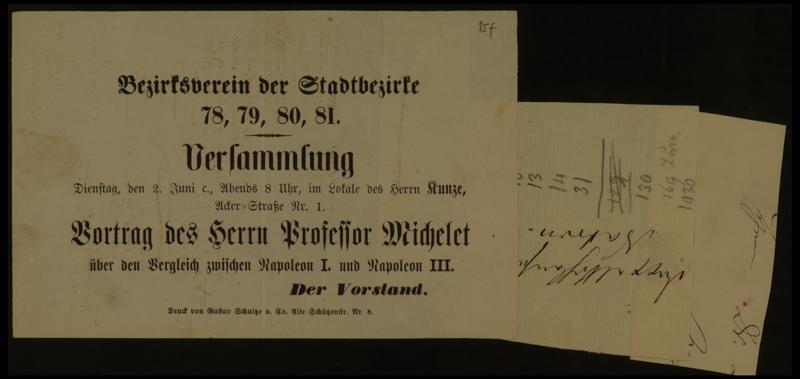 15f
Bezirksverein der Stadtbezirke
78, 79, 80, 81.
Versammlung
Dienstag, den 2. Juni c., Abends 8 Uhr, im Lokale des Herrn Kunze,
Acker-Straße Nr. 1.
Vortrag des Herrn Professor Michelet
über den Vergleich zwischen Napoleon I. und Napoleon III.
Der Vorstand.
Druck von Gustav Schultze u. Co. Alte Schützenstr. Nr. 8.
13
14
31
130
169
1030